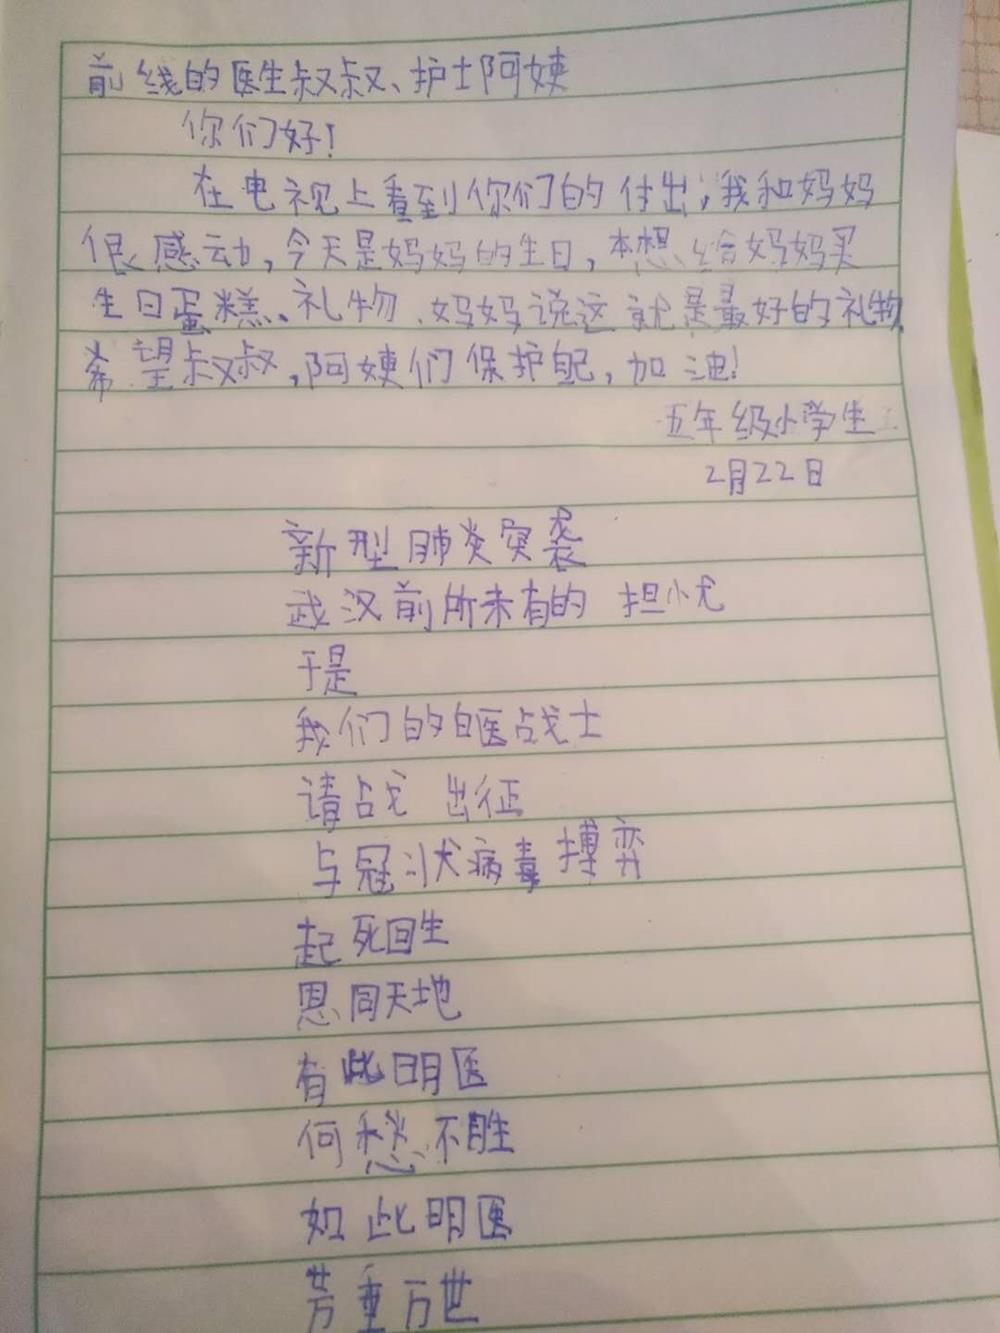 前线的医生叔叔、护士阿姨
你们好!
在电视上看到你们的付出,我和妈妈
很感动,今天是妈妈的生日,本想给妈妈买
生日蛋糕、礼物.妈妈说这就是最好的礼物
希望叔叔,阿姨们保护自己,加油!
五年级小学生
2月22日
新型肺炎突袭
武汉前所未有的 担忧
于是
我们的白医战士
请战 出征
与冠状病毒搏弈
起死回生
恩同天地
有此明医
何愁不胜
如此明医
芳垂万世